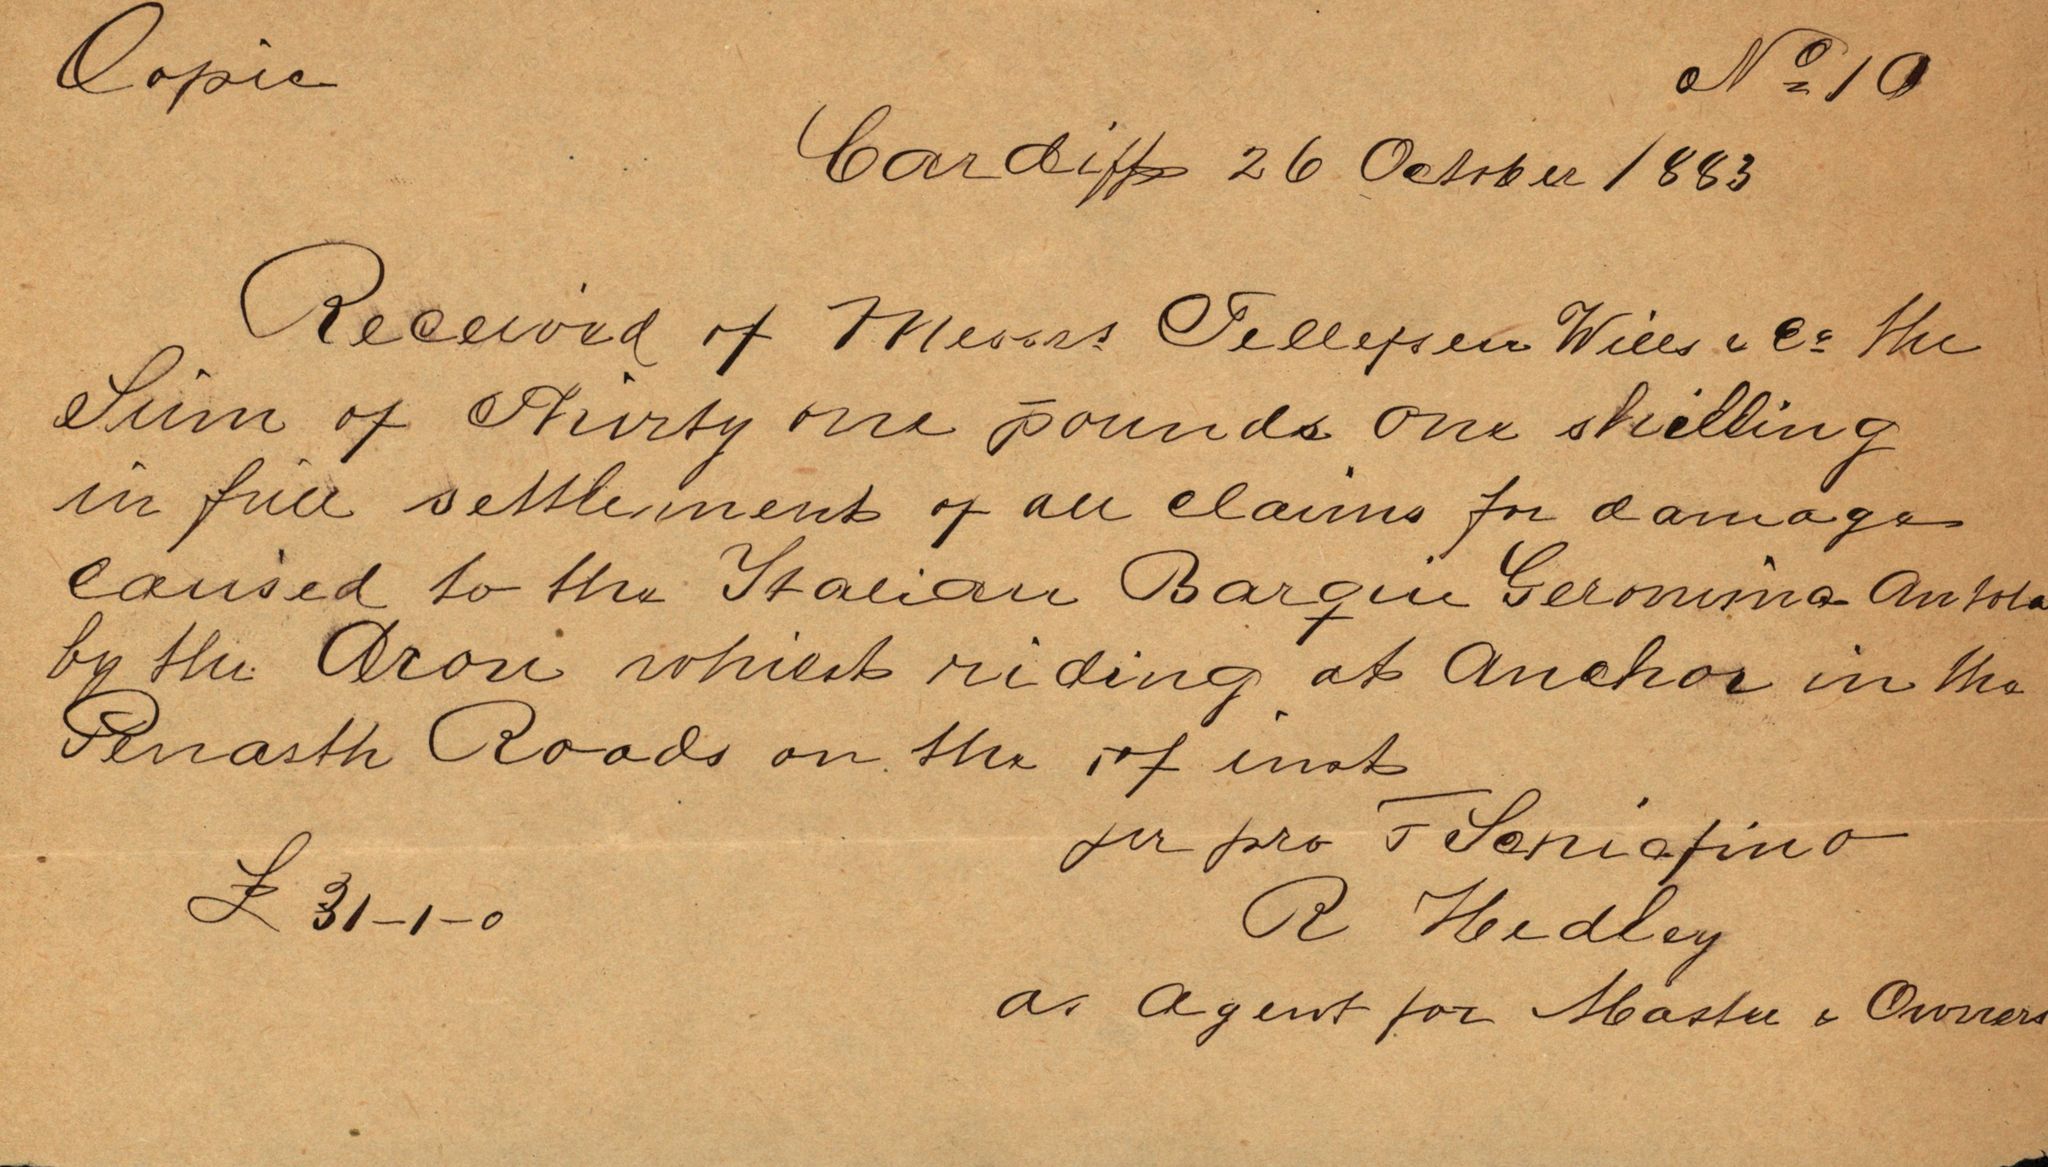 Copie
No 10
Cardiff 26 October 1883
Received of Messrs Tellefsen Wills & Co the
Sum of Thirty one pounds one shilling
in full settlement of all claims for damage
caused to the Italian Barque Geronima Antola
by the Aron whilst riding at Anchor in the
Penarth Roads on the of inst
per pro T Schiafino
£ 31-1-0
R Hedley
as Agent for Master & Owners